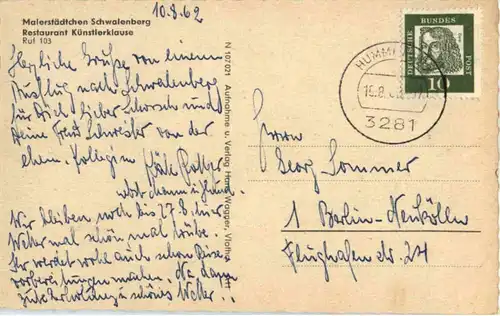 Malerstädtchen Schwalenberg
Restaurant Künstlerklause
Ruf 103
10.8.62
Herzliche Grüße von einem
Ausflug nach Schwalenberg
für Dich lieber Schorsch und
Deine Frau Schwester von der
ehem. Kollegin Käte
Wir bleiben noch bis 27.8. hier
Wetter mal schön mal trübe.
Ihr werdet wohl auch schon Reise
vorbereitungen machen. Na dann
gute Erholung u. schönes Wetter.
N 107021 Aufnahme u. Verlag Hans Wagner, Vlotho
DEUTSCHE BUNDESPOST
10
3281
Herrn
Georg Sommer
1 Berlin-Neukölln
Flughafenstr. 24